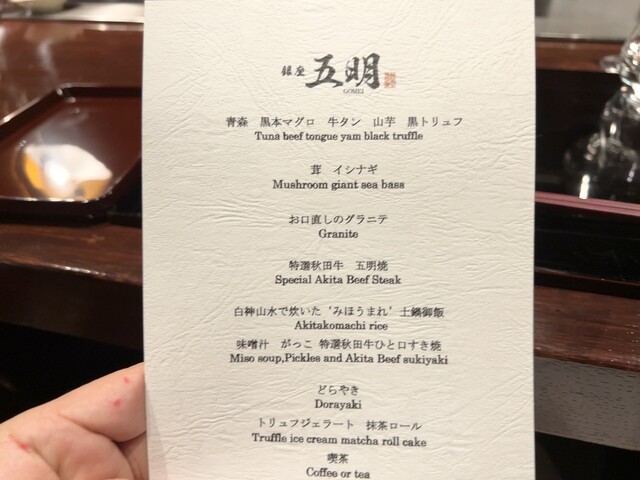 銀座 五明
GOMEI
青森 黒本マグロ 牛タン 山芋 黒トリュフ
Tuna beef tongue yam black truffle
茸 イシナギ
Mushroom giant sea bass
お口直しのグラニテ
Granite
特選秋田牛 五明焼
Special Akita Beef Steak
白神山水で炊いた‘みほうまれ’土鍋御飯
Akitakomachi rice
味噌汁 がっこ 特選秋田牛ひと口すき焼
Miso soup,Pickles and Akita Beef sukiyaki
どらやき
Dorayaki
トリュフジェラート 抹茶ロール
Truffle ice cream matcha roll cake
喫茶
Coffee or tea